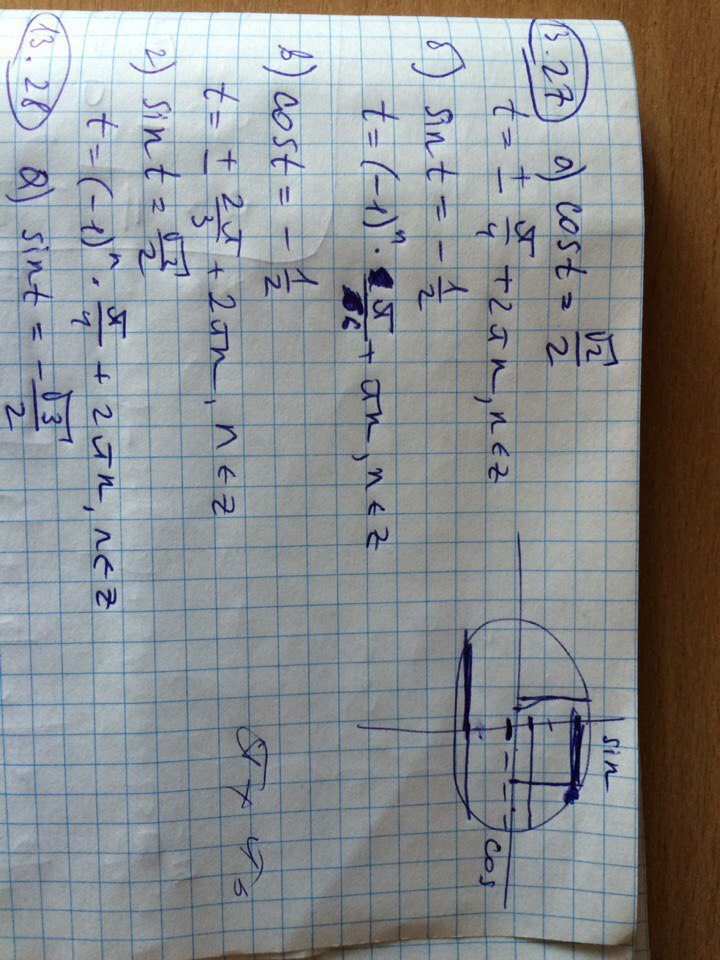 13.27 а) cost = √2/2
t = ± π/4 + 2πn, n∈z
б) sint = - 1/2
t = (-1)ⁿ · π/6 + πn, n∈z
в) cost = - 1/2
t = ± 2π/3 + 2πn, n∈z
г) sint = √3/2
t = (-1)ⁿ · π/4 + 2πn, n∈z
13.28
а) sint = - √3/2
sin
cos